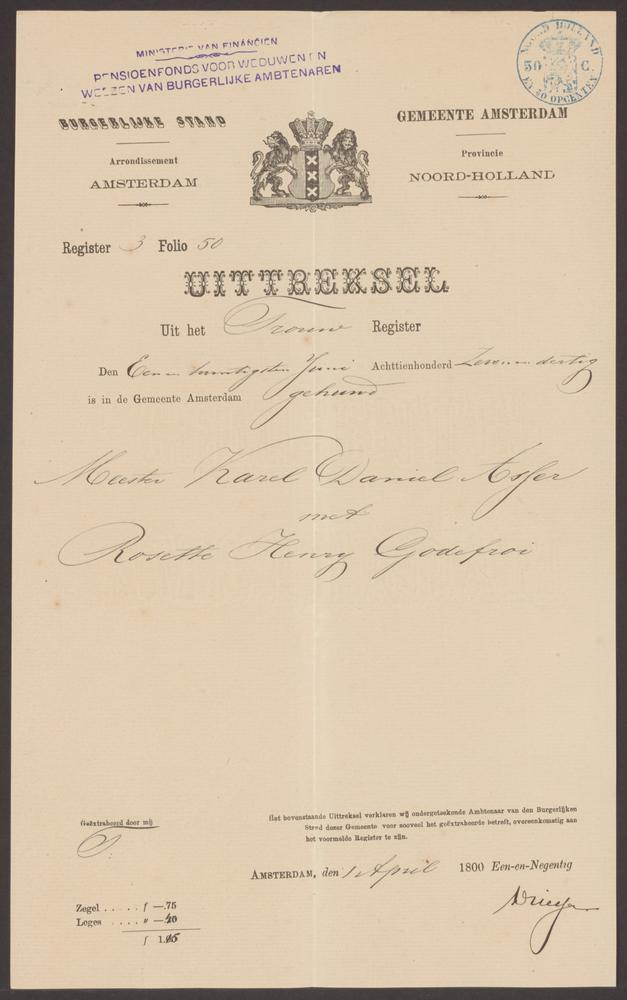 MINISTERIE VAN FINANCIEN
PENSIOENFONDS VOOR WEDUWEN EN
WEEZEN VAN BURGERLIJKE AMBTENAREN
NOORD HOLLAND
50 C.
EN 50 OPCENTEN
BURGERLIJKE STAND
Arrondissement
AMSTERDAM
GEMEENTE AMSTERDAM
Provincie
NOORD-HOLLAND
Register 3 Folio 50
UITTREKSEL
Uit het Trouw Register
Den Een en twintigsten Juni Achttienhonderd Zeven en dertig
is in de Gemeente Amsterdam gehuwd
Meester Karel Daniel Asser
met
Rosette Henry Godefroi
Het bovenstaande Uittreksel verklaren wij ondergeteekende Ambtenaar van den Burgerlijken
Stand dezer Gemeente voor zooveel het geëxtraheerde betreft, overeenkomstig aan
het voormelde Register te zijn.
Geëxtraheerd door mij
AMSTERDAM, den 1 April 1800 Een-en-Negentig
Zegel ..... f —.75
Leges ..... " —
f 1.